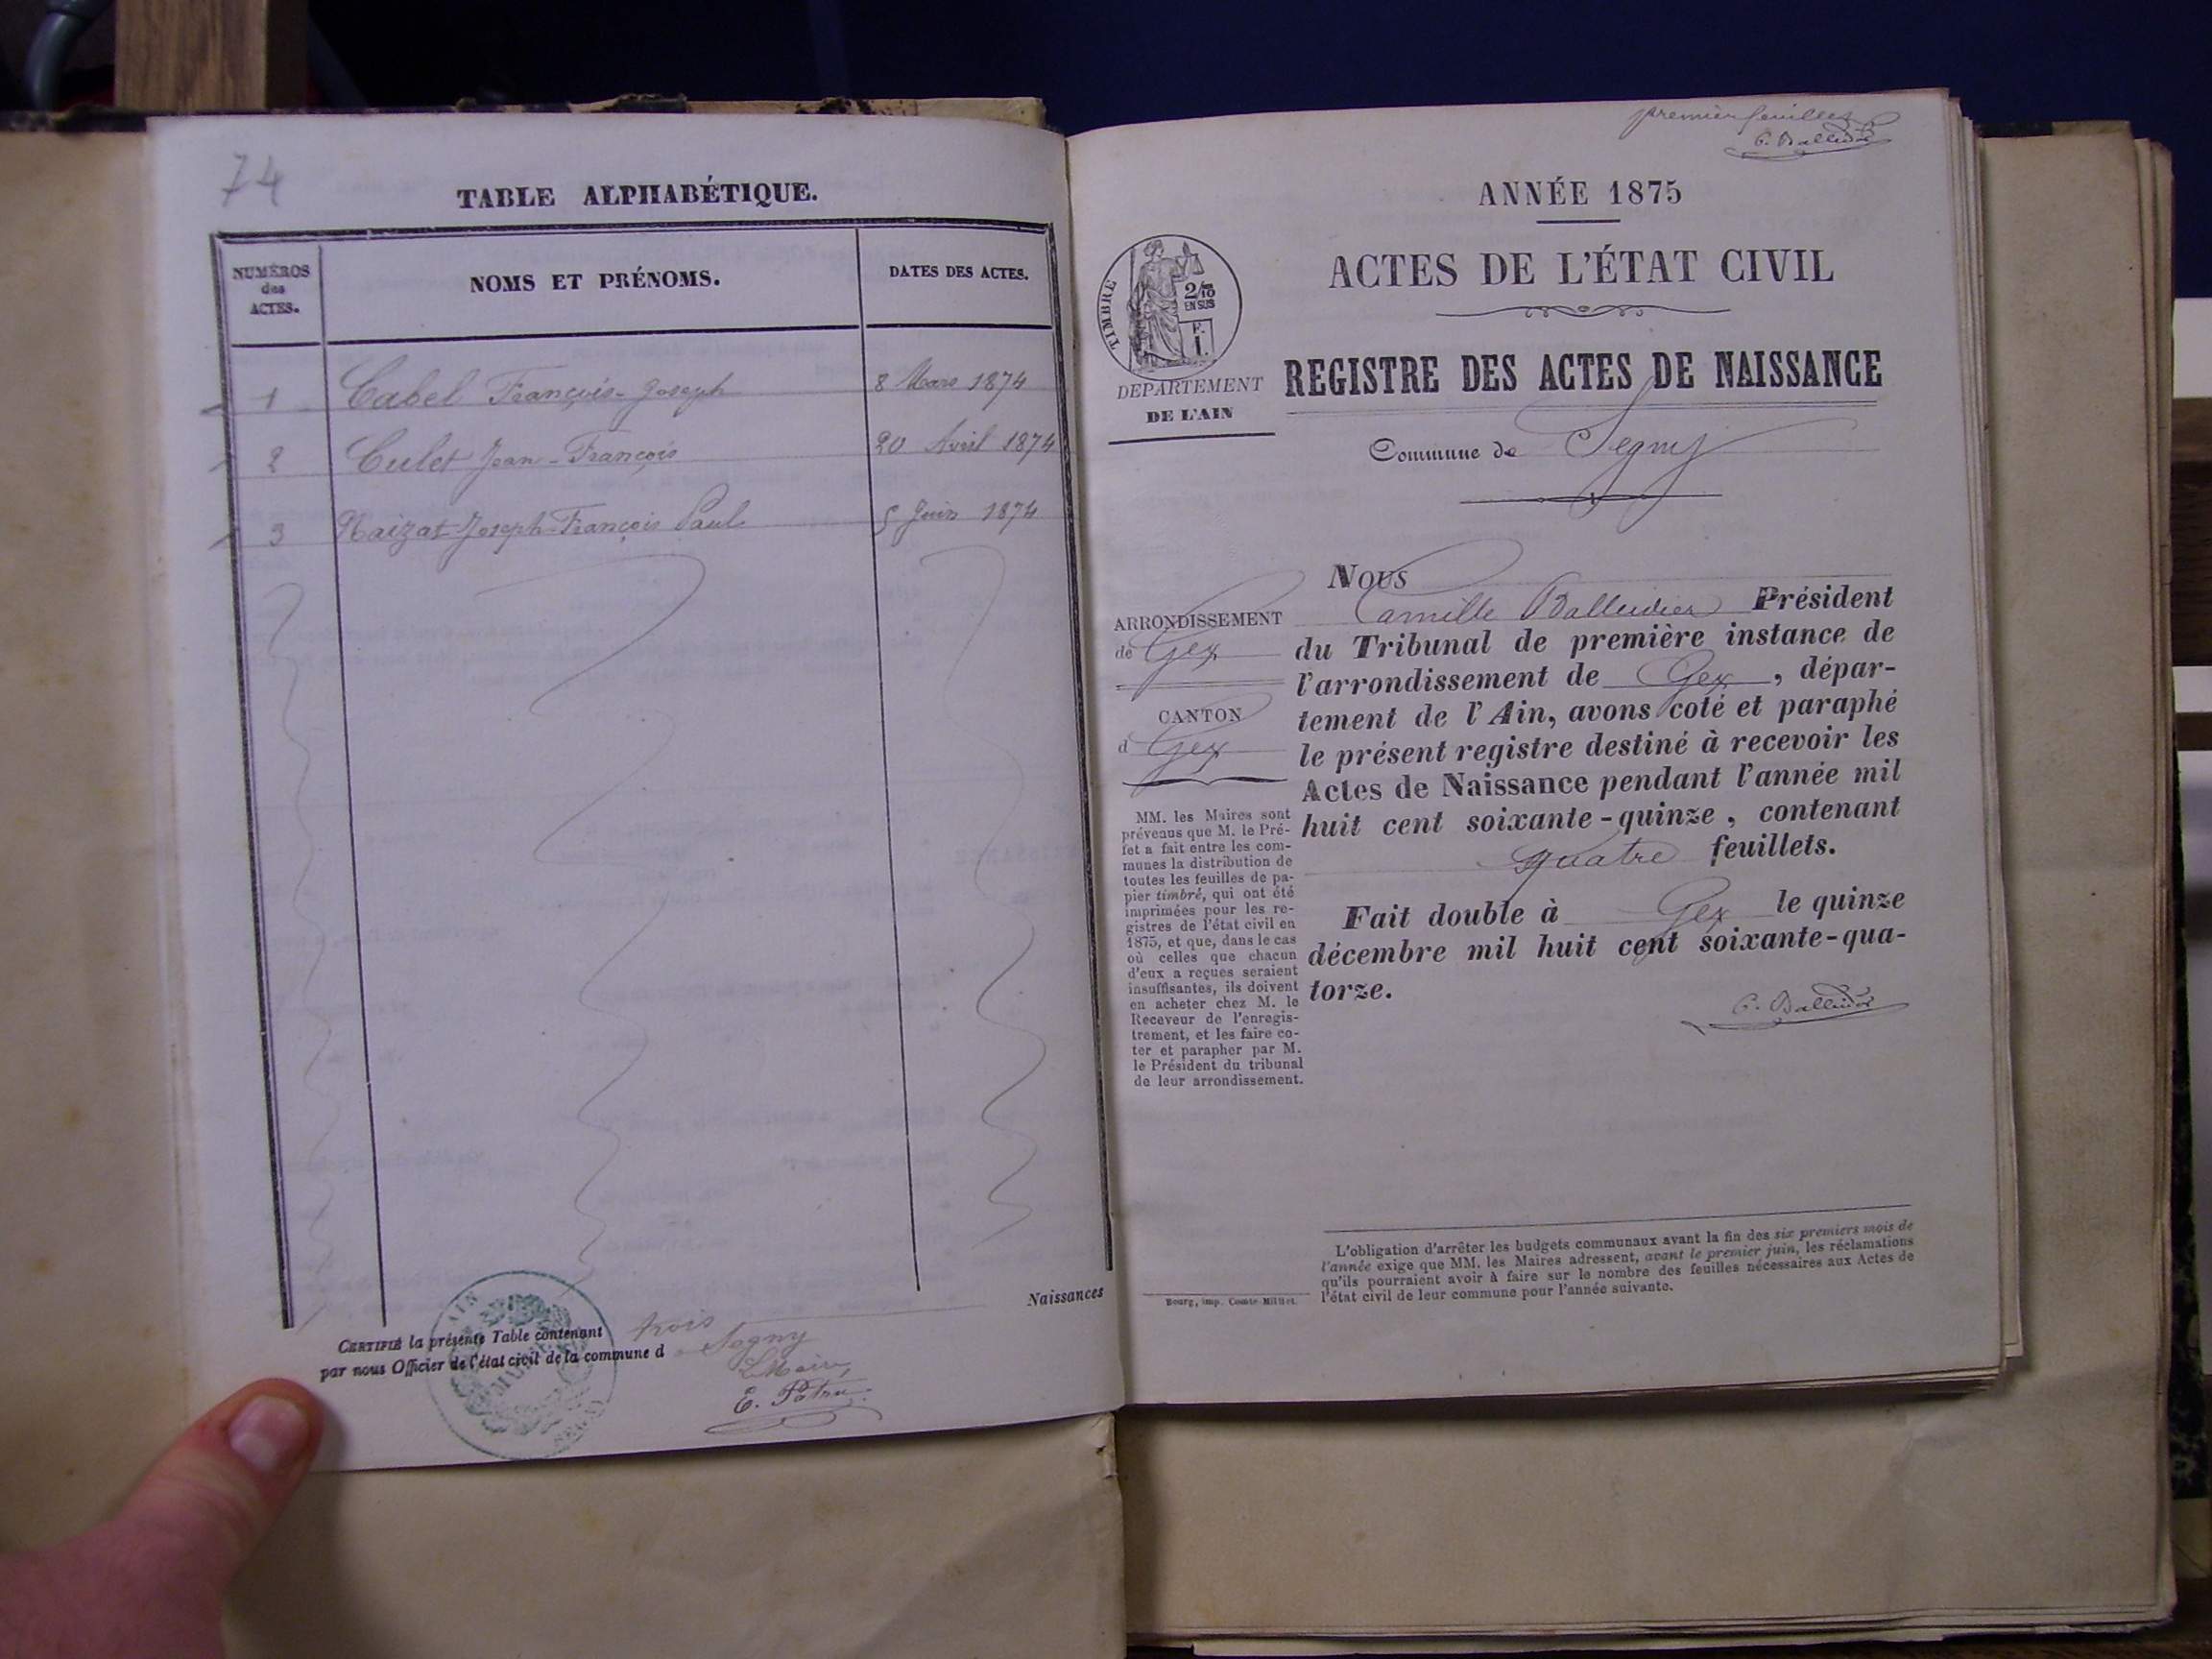 74
TABLE ALPHABÉTIQUE.
NUMÉROS
des
ACTES.
NOMS ET PRÉNOMS.
DATES DES ACTES.
1 Cabel François-Joseph 8 Mars 1874
2 Culet Jean-François 20 Avril 1874
3 Joseph-François Paul 5 Juin 1874
CERTIFIÉ la présente Table contenant trois Naissances
par nous Officier de l'état civil de la commune d Segny
Le Maire,
E. Patru
premier feuillet
C. Balleidier
ANNÉE 1875
ACTES DE L'ÉTAT CIVIL
TIMBRE
2/10
EN SUS
F.
1.
DÉPARTEMENT
DE L'AIN
REGISTRE DES ACTES DE NAISSANCE
Commune de Segny
ARRONDISSEMENT
de Gex
CANTON
d Gex
MM. les Maires sont
prévenus que M. le Pré-
fet a fait entre les com-
munes la distribution de
toutes les feuilles de pa-
pier timbré, qui ont été
imprimées pour les re-
gistres de l'état civil en
1875, et que, dans le cas
où celles que chacun
d'eux a reçues seraient
insuffisantes, ils doivent
en acheter chez M. le
Receveur de l'enregis-
trement, et les faire co-
ter et parapher par M.
le Président du tribunal
de leur arrondissement.
NOUS
Camille Balleidier Président
du Tribunal de première instance de
l'arrondissement de Gex, dépar-
tement de l'Ain, avons coté et paraphé
le présent registre destiné à recevoir les
Actes de Naissance pendant l'année mil
huit cent soixante-quinze, contenant
quatre feuillets.
Fait double à Gex le quinze
décembre mil huit cent soixante-qua-
torze.
C. Balleidier
L'obligation d'arrêter les budgets communaux avant la fin des six premiers mois de
l'année exige que MM. les Maires adressent, avant le premier juin, les réclamations
qu'ils pourraient avoir à faire sur le nombre des feuilles nécessaires aux Actes de
l'état civil de leur commune pour l'année suivante.
Bourg, imp. Comte-Milliet.